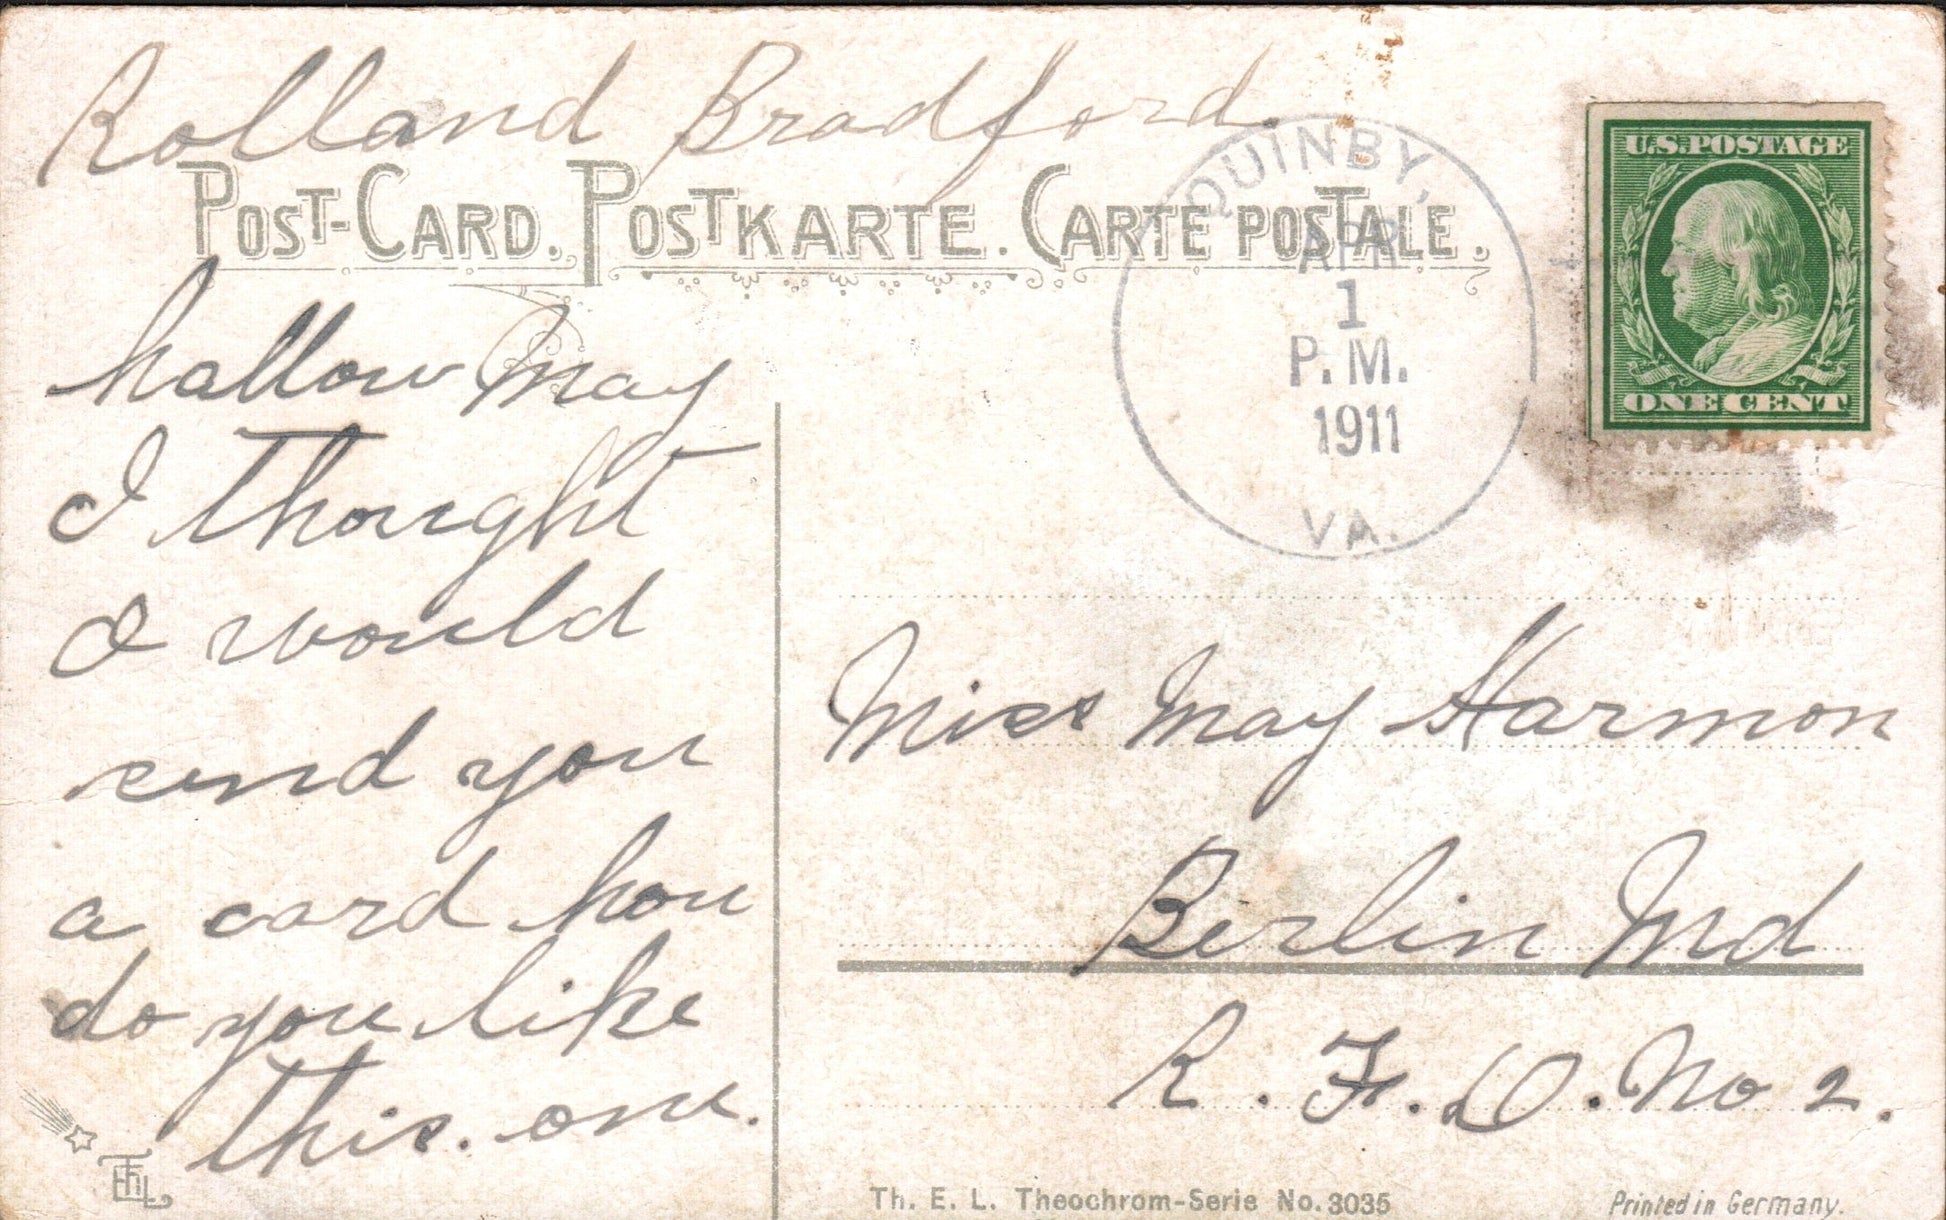 Rolland Bradford.
POST-CARD. POSTKARTE. CARTE POSTALE.
QUINBY,
APR
1
P.M.
1911
VA.
U.S. POSTAGE
ONE CENT
hallow May
I thought
I would
send you
a card how
do you like
this. one.
Miss May Harmon
Berlin Md
R. F. D. No 2.
ThEL
Th. E. L. Theochrom-Serie No. 3035
Printed in Germany.